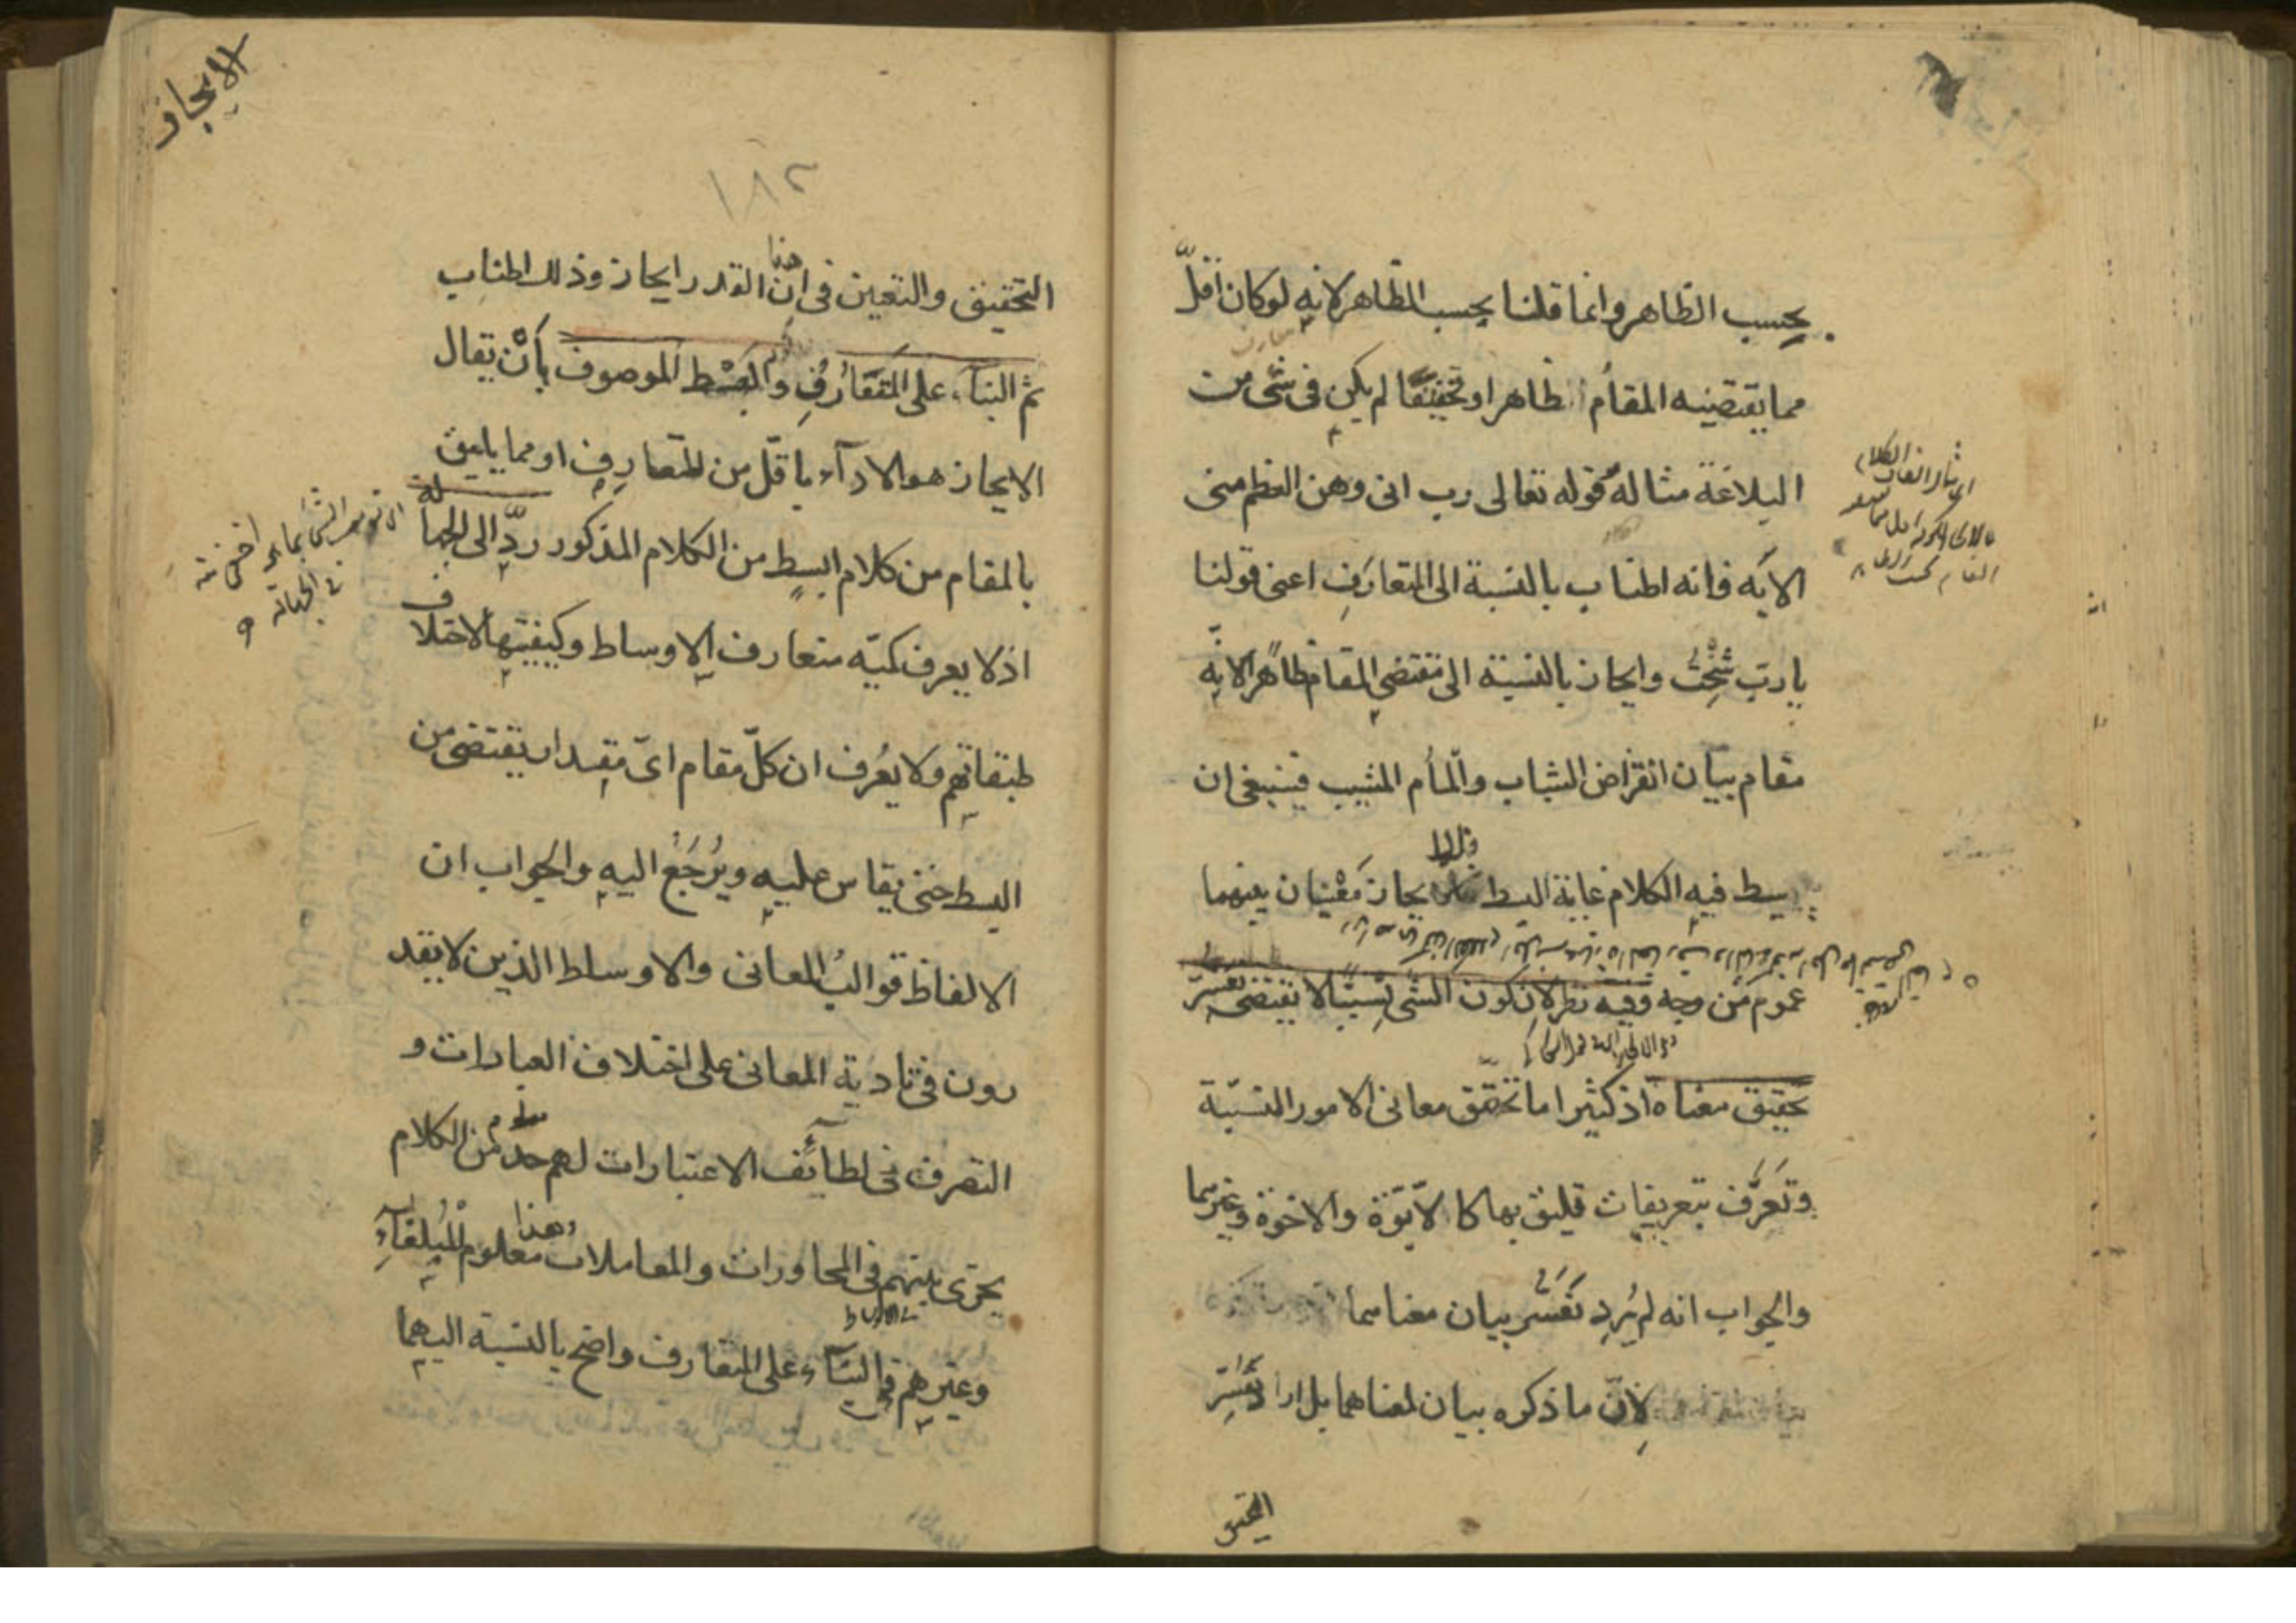 بحسب الظاهر وانما قلنا بحسب الظاهر لانه لو كان اقلّ
مما يقتضيه المقام ظاهرا او تحقيقا لم يكن فى شئ من
البلاغة مثاله قوله تعالى رب انى وهن العظم منى
الايه فانه اطناب بالنسبة الى المتعارف اعنى قولنا
يا ربّ شِخْتُ وايجاز بالنسبة الى مقتضى المقام ظاهرا لانّه
مقام بيان انقراض الشباب والمام المشيب فينبغى ان
يبسط فيه الكلام غاية البسط فللايجاز مَعْنيان بينهما
عموم من وجه وفيه نظر لان كون الشئ نسبيّا لا يقتضى تعسّر
تحقيق معناه اذ كثيرا ما تحقّق معانى الامور النسبيّة
وتعرّف بتعريفات تليق بها كالابّوة والاخوة وغيرهما
والجواب انه لم يُرِد تعسّر بيان معناهما
لانّ ما ذكره بيان لمعناهما بل اراد تعسّر
التحقيق
الايجاز
١٨٢
التحقيق والتعيين فى انّ هذا القدر ايجاز وذلك اطناب
ثم البناء على المتعارف والبسط الموصوف بأنْ يقال
الايجاز هو الاداء باقلّ من المتعارف او مما يليق
بالمقام من كلام ابسط من الكلام المذكور ردّ الى الجهالة
اذ لا يعرف كميّه متعارف الاوساط وكيفيتها لاختلاف
طبقاتهم ولا يُعرف ان كلّ مقام اىّ مقدار يقتضى من
البسط حتى يقاس عليه ويُرجَعُ اليه والجواب ان
الالفاظ قوالبُ المعانى والاوساط الذين لا يقد
رون فى تادية المعانى على اختلاف العبارات و
التصرف فى لطائف الاعتبارات لهم حدّ معلوم من الكلام
يجرى بينهم فى المحاورات والمعاملات وهذا معلوم للبلغاء
وغيرهم فالبناء على المتعارف واضح بالنسبة اليهما